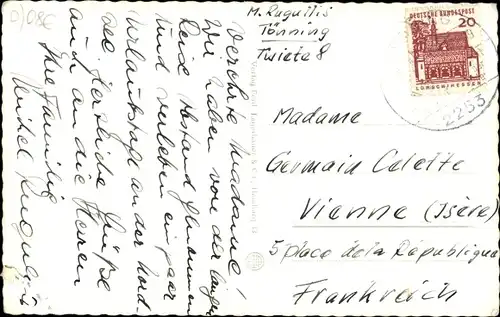 M. Rugullis
Tönning
Twiete 8
DEUTSCHE BUNDESPOST
20
LORSCH/HESSEN
2253
Madame
Germain Colette
Vienne (Isère)
5 place de la République
Frankreich
Verehrte Madame!
Wir haben von der langen
Reise Abstand genommen
und verleben ein paar
Urlaubstage an der Nord-
see. Herzliche Grüße
auch an die Herren
Ihre Familie